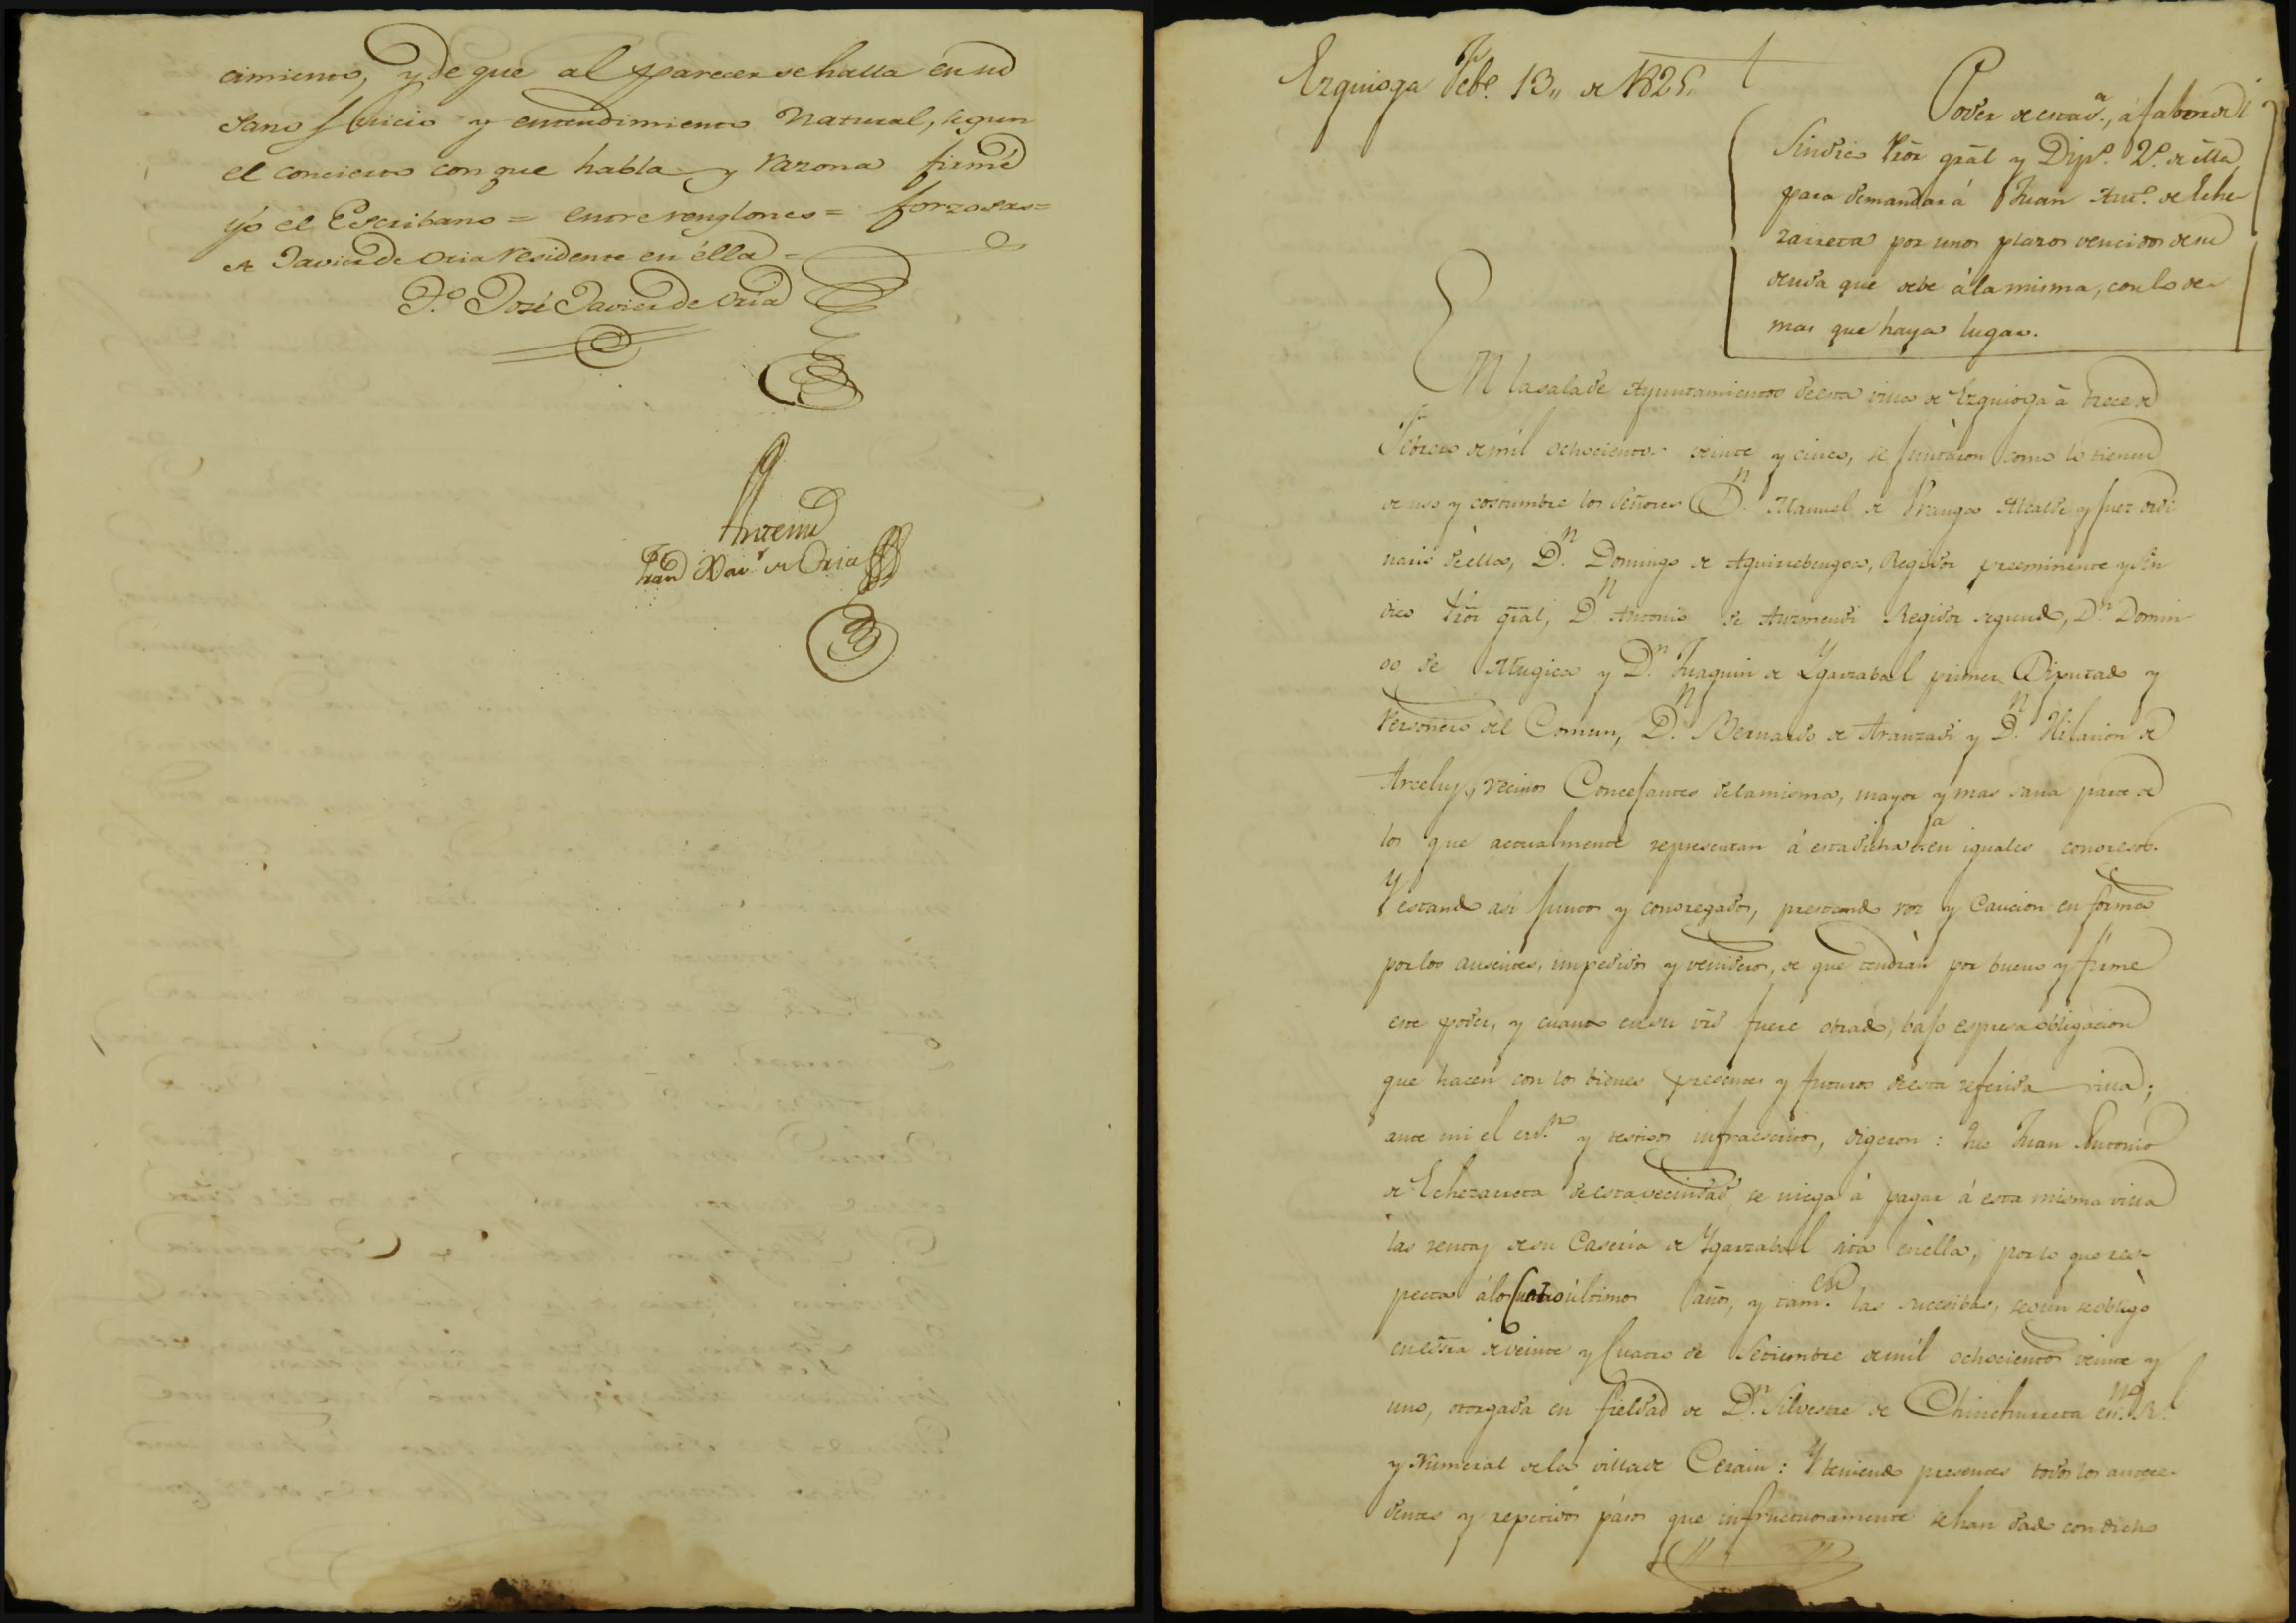 cimiento, y de que al parecer se halla en su
sano Juicio y entendimiento Natural, segun
el concierto con que habla y razona firmé
yó el Escribano = entre renglones = forzosas =
de Javier de Oria residente en élla =
T.º José Javier de Oria
Antemi
Fran Xav.r de Oria
Ezquioga Feb.º 13,, de 1825.
Poder de esta v.a, á fabor del
Sindico Prōr grāl y Dip.º 2.º de ella
para demandar á Juan Ant.º de Eche
zarreta por unos plazos vencidos de su
deuda que debe á la misma, con lo de-
mas que haya lugar.
En la sala de Ayuntamiento de esta villa de Ezquioga á trece de
Febrero de mil ochocientos veinte y cinco, se juntaron como lo tienen
de uso y costumbre los Señores D.n Manuel de Alcalde y Juez ordi
nario de ella, D.n Domingo de Aguirrebengoa, Regidor preeminente y Sin
dico Prōr grāl, D.n Antonio de Auzmendi Regidor segundo, D.n Domin
go de Mugica y D.n Juaquin de Ygarzabal primer Diputado y
Personero del Comun, D.n Bernardo de Aranzadi y D.n Hilarion de
Arcelus, vecinos Concejantes de la misma, mayor y mas sana parte de
los que actualmente representan á esta dicha v.a en iguales congresos.
Y estando asi juntos y congregados, prestando voz y Caucion en forma
por los ausentes, impedidos y venideros, de que tendrán por bueno y firme
este poder, y cuanto en su vrd fuere obrado, bajo espresa obligacion
que hacen con los bienes presentes y futuros de esta referida villa;
ante mi el esn.º y testigos infraescritos, digeron: Que Juan Antonio
de Echezarreta de esta vecindad se niega á pagar á esta misma villa
las rentas de su Caseria de Ygarzabal sita en ella, por lo que res-
pecta á los Cuatro últimos años, y tam.en las sucesibas, segun se obligó
en esrā de veinte y Cuatro de Setiembre de mil ochocientos veinte y
uno, otorgada en fieldad de D.n Silvestre de Chinchurreta es.no R.l
y Numeral de la villa de Cerain: Y teniendo presentes todos los antece-
dentes y repetidos pasos que infructuosamente se han dado con dicho